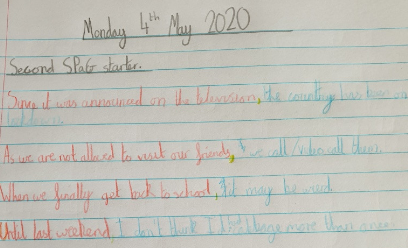 Monday 4th May 2020
Second SPaG starter.
Since it was announced on the television, the country has been on
lockdown.
As we are not allowed to visit our friends, we call/video call them.
When we finally get back to school, it may be weird.
Until last weekend, I don't think I binge more than once.